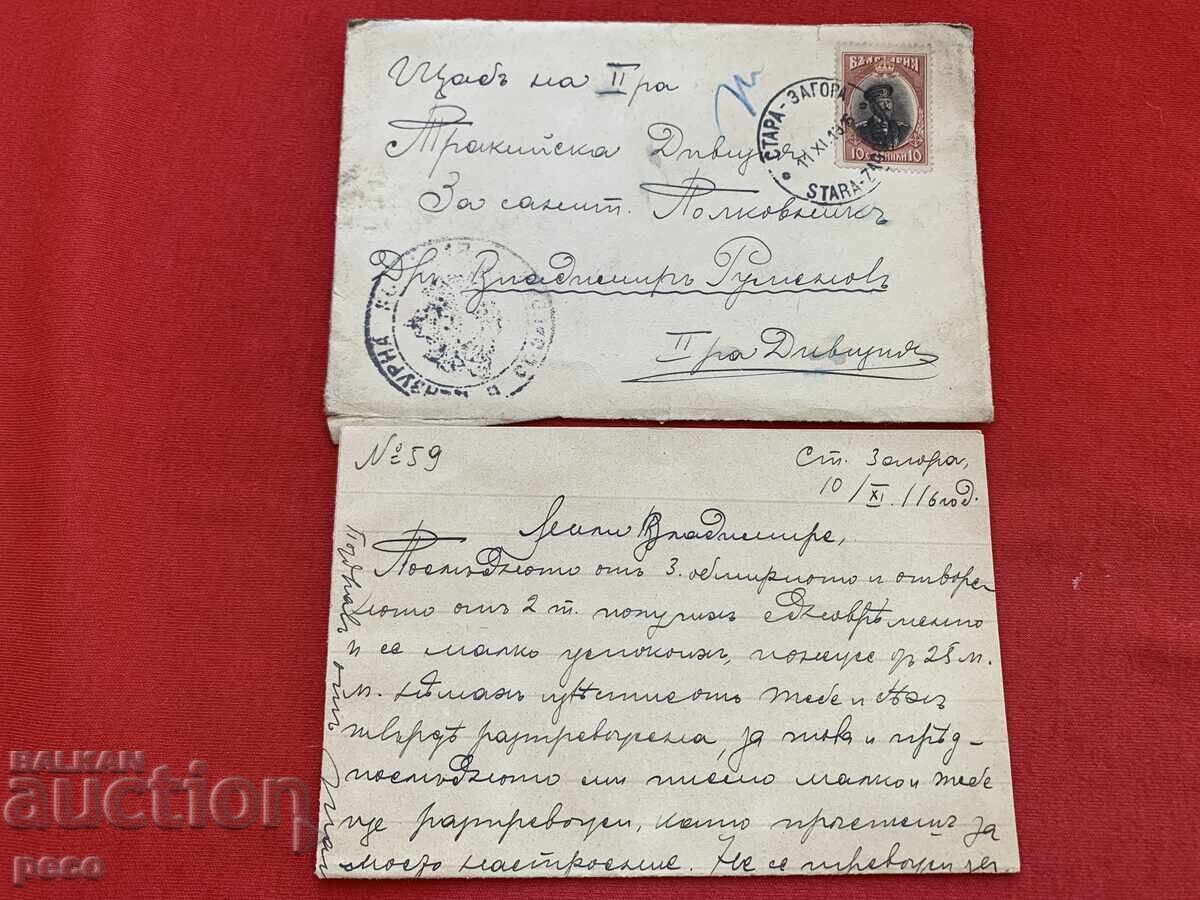 Щабъ на II ра
Тракийска Дивизия
За санит. Полковникъ
Dr. Владимиръ Руменовъ
II ра Дивизия
БЪЛГАРИЯ
10 СТОТИНКИ 10
СТАРА-ЗАГОРА
11 XI
STARA-ZA
№ 59
Ст. Загора,
10/XI.116 год.
Мили Владимире,
Последньото отъ 3. обширното и отворе
ното отъ 2 т. получихъ едновременно
и се малко успокоихъ, понеже отъ 28 м.
м. немахъ известие отъ тебе и бехъ
твърде разтревожена, за това и пред-
последньото ми писмо малко и тебе
ще разтревожи, като прочетешъ за
моето настроение. Не се тревожи
Поздравъ отъ
BALKAN
auction
peco